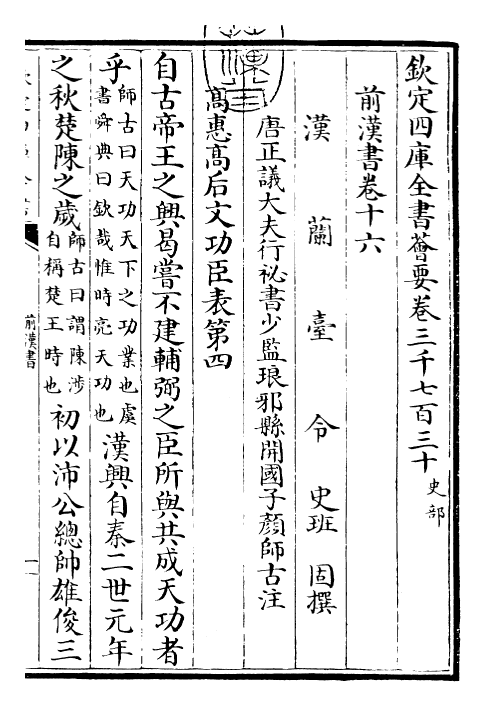 欽定四庫全書薈要卷三千七百三十 史部
前漢書卷十六
漢蘭臺令史班固撰
唐正議大夫行祕書少監琅邪縣開國子顏師古注
高惠高后文功臣表第四
自古帝王之興曷嘗不建輔弼之臣所與共成天功者
乎師古曰天功天下之功業也虞書舜典曰欽哉惟時亮天功也漢興自秦二世元年
之秋楚陳之歲師古曰謂陳涉自稱楚王時也初以沛公總帥雄俊三
前漢書
一